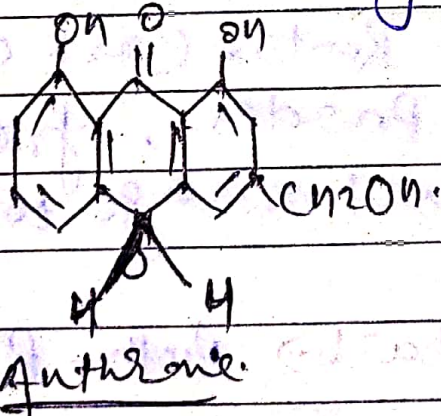 OH O OH
CH2OH.
H H
Anthrone.